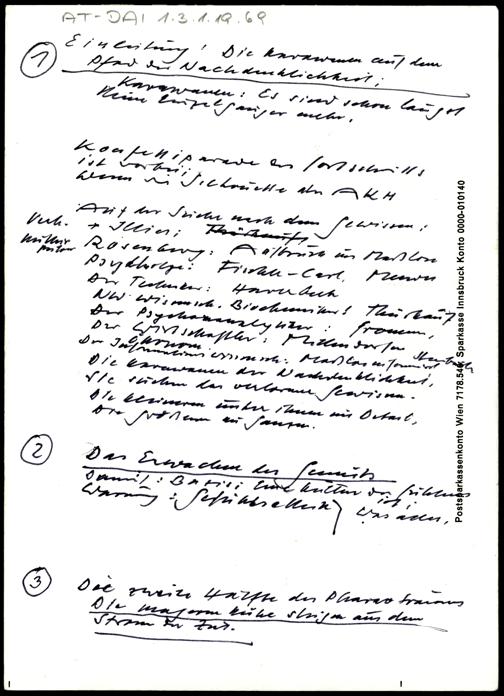 AT-DAI 1.3.1.19.69
1
Einleitung! Die Karawanen auf dem
Pfad der Nachdenklichkeit:
Karawanen: Es sind schon längst
keine Einzelgänger mehr.
Konfettiparade des Fortschritts
ist vorbei
AKH
Auf der Suche nach dem Gewissen:
+ Illies:
Rosenberg: Aufbruch ins Maßlose
Psychologe: Fischle-Carl,
Der Techniker:
Nat. wissensch. Biochemiker! Thürkauf
Der Psychoanalytiker: Fromm,
Der Wirtschaftler:
Ökonom
Der Informationswissensch.: Maßlos informiert
Die Karawanen der Nachdenklichkeit,
Sie suchen das verlorene Gewissen.
Die kleineren unter ihnen im Detail,
Die größeren im Ganzen.
2
Das Erwachen des Gemüts
Damit: Basis: Eine Kultur des Fühlens
Warnung: ist
was anderes,
3
Die zweite Hälfte des Pharao traumes
Die mageren Kühe steigen aus dem
Strom der Zeit.
Postsparkassenkonto Wien 7178.546, Sparkasse Innsbruck Konto 0000-010140